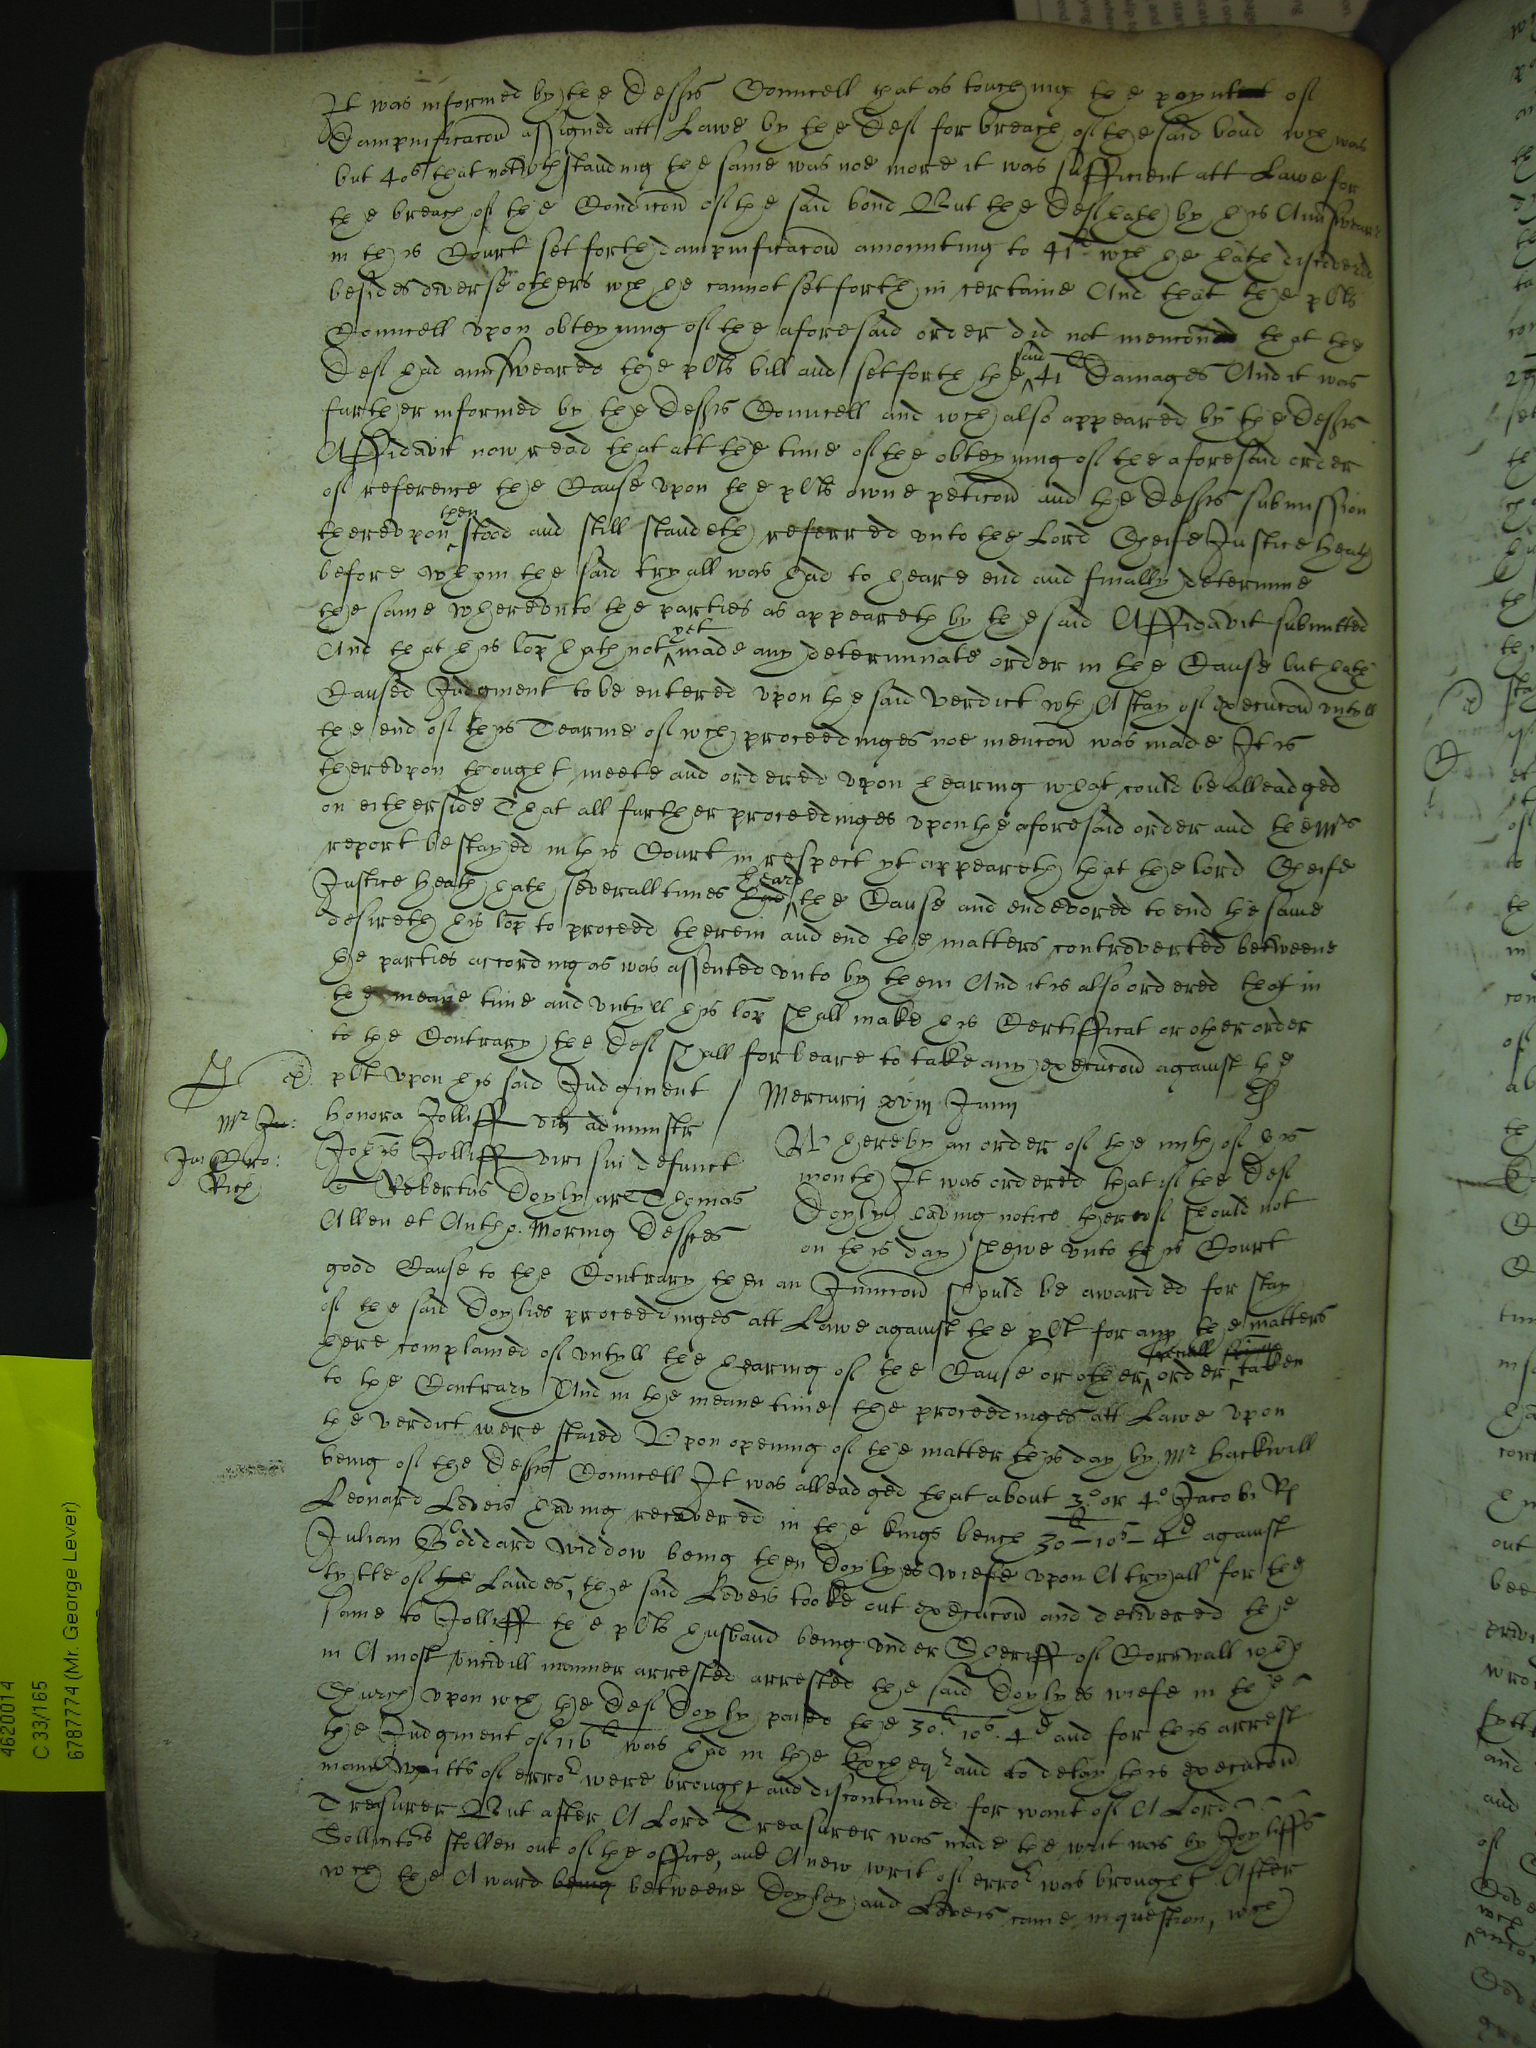 It was informed by the Defts Councell that as touching the poynt of
Dampnificacon assigned att Lawe by the Def for breach of the said bond wch was
but 40s that notwthstanding the same was noe more it was sufficient att Lawe for
the breach of the Condicon of the said bond But the Def hath by his Aunsweare
in this Court set forth dampnificacon amounting to 41li wch he hath discovered
besides diverse others wch he cannot set forth in certaine And that the plts
Councell upon obteyning of the aforesaid order did not mencon that the
Def had aunsweared the plts bill and set forth the said 41li Damages And it was
further informed by the Defts Councell and wch also appeared by the Defts
Affidavit now read that att the time of the obteyning of the aforesaid order
of reference the Cause upon the plts owne peticon and the Defts submission
thereupon then stood and still standeth referred unto the Lord Cheife Justice Heath
before whom the said tryall was had to heare end and finally determine
the same whereunto the parties as appeareth by the said Affidavit submitted
And that his lop hath not yet made any determinate order in the Cause but hath
Caused Judgment to be entered upon the said verdict wth A stay of execucon untyll
the end of this Tearme of wch proceedinges noe mencon was made It is
thereupon thought meete and ordered upon hearing what could be alleadged
on either side That all further proceedinges upon the aforesaid order and the Mrs
report be stayed in this Court in respect yt appeareth that the lord Cheife
Justice Heath hath severall times had heard the Cause and endevored to end the same
desireth his lop to proceed therein and end the matters controverted betweene
the parties according as was assented unto by them And it is also ordered that in
the meane time and untyll his lop shall make his Certifficat or other order
to the Contrary the Def shall forbeare to take any execucon against the
plt upon his said Judgment
Mercurii xviii Junii
Mr Ju:
Jux Cro:
Rich
Honora Jolliff vid administr
Johis Jolliff viri sui defunct
Robertus Doyly ar Thomas
Allen et Antho. Moring Deftes
Whereby an order of the iiiith of this
month It was ordered that if the Def
Doyly having notice thereof should not
on this day shewe unto this Court
good Cause to the Contrary then an Iniunccon should be awarded for stay
of the said Doylies proceedinges att Lawe against the plt for any the matters
here complained of untyll the hearing of the Cause or other order taken
to the Contrary And in the meane time the proceedinges att Lawe upon
the verdict were staied Upon opening of the matter this day by Mr Hackwill
being of the Defts Councell It was alleadged that about 3o or 4o Jacobi R
Leonard Loveis having recovered in the kings bench 30li 10s 4d against
Julian Goddard widdow being then Doylyes wiefe upon A tryall for the
tytle of the Landes, the said Loveis tooke out execucon and delivered the
same to Jolliff the plts husband being under Sheriff of Cornwall who
in A most uncivill manner arrested arrested the said Doylyes wiefe in the
Church upon wch the Def Doyly paied the 30li 10s 4d and for this arrest
the Judgment of 116li was had in the Excheqr and to delay this execucon
many writts of error were brought and discontinued for want of A Lord
Treasurer But after A Lord Treasurer was made the writ was by Joyliffs
Sollicitors stollen out of the office, and A new writ of error was brought After
wch the Award being betweene Doyley and Loveis came in question, wch
4620014
C 33/165
6787774 (Mr. George Lever)